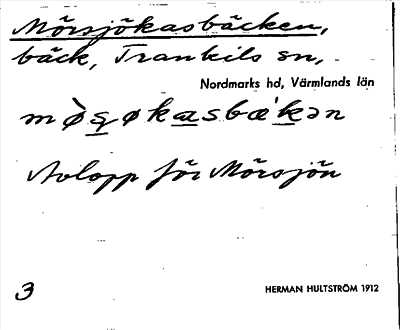 Mörsjökasbäcken,
bäck, Trankils sn,
Nordmarks hd, Värmlands län
mø̀s̨økasbæ'kən
Avlopp för Mörsjön
3
HERMAN HULTSTRÖM 1912